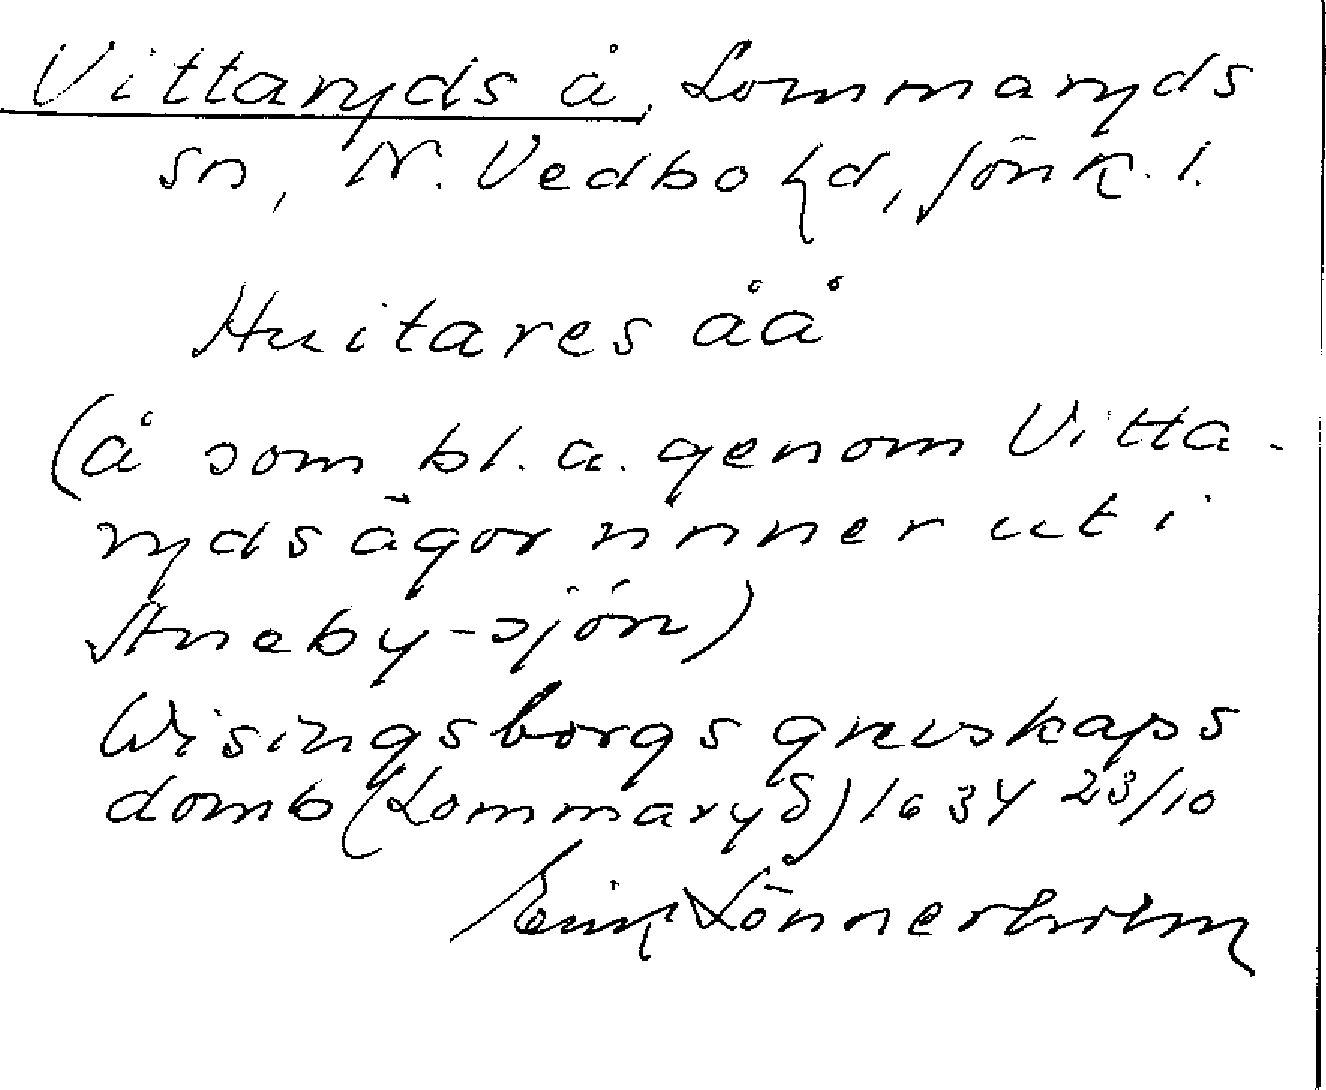 Vittaryds å, Lommaryds
sn, N. Vedbo hd, Jönk. l.
Huitares åå
(å som bl. a. genom Vitta-
ryds ägor rinner ut i
Aneby-sjön)
Wisingsborgs grevskaps
domb (Lommaryd) 1634 23/10
Erik Lönnerholm